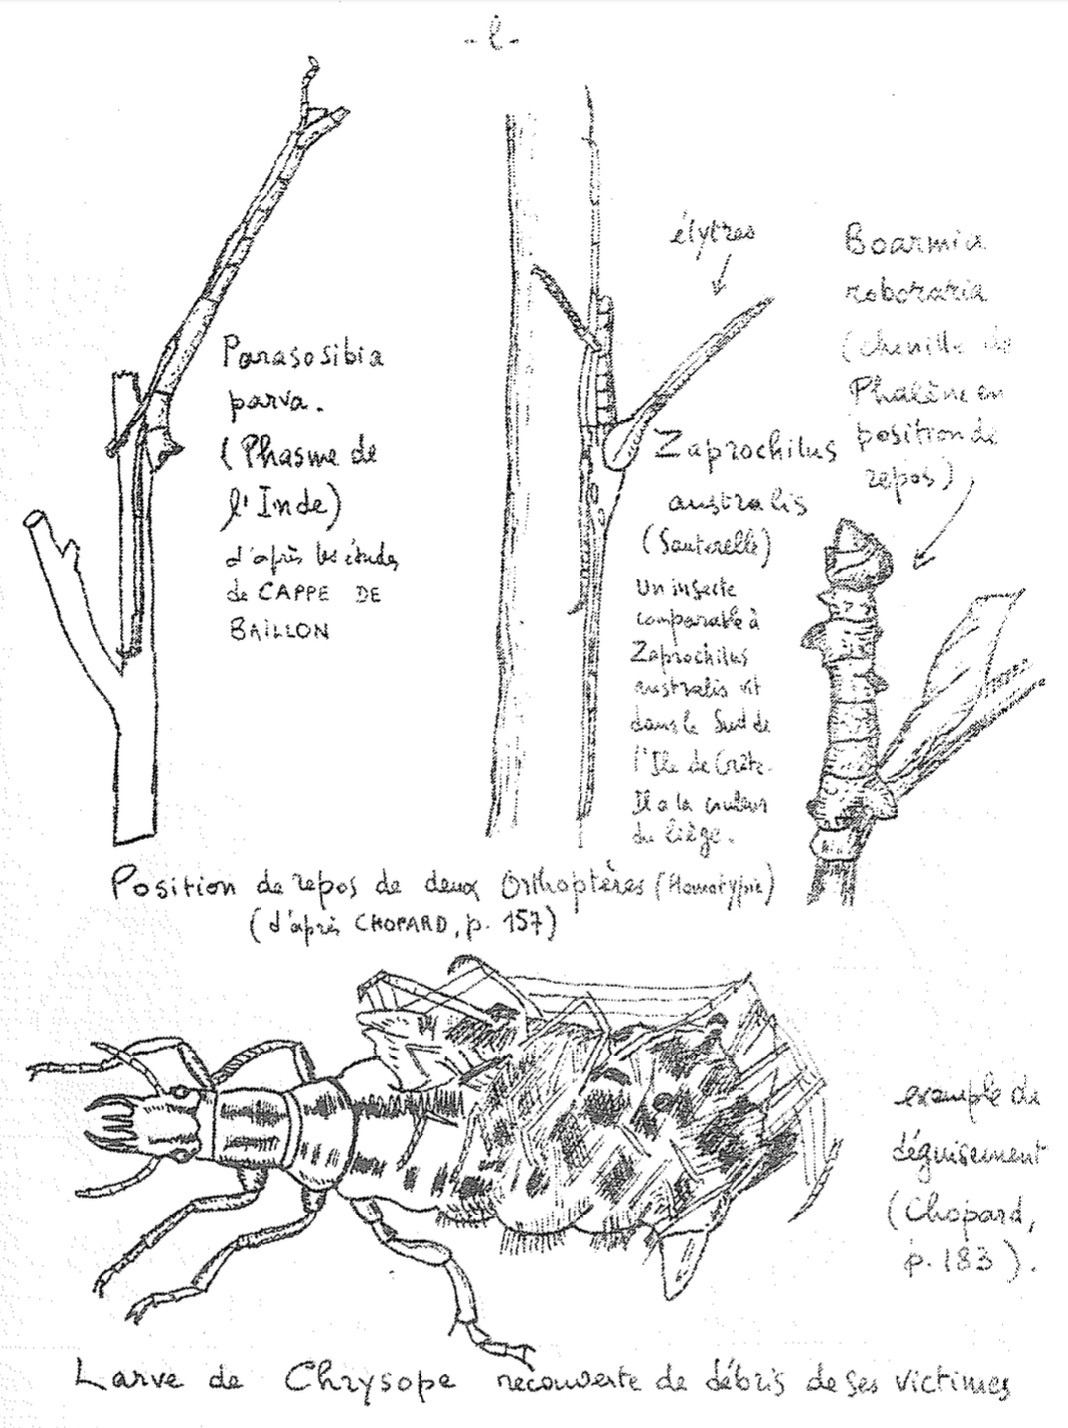 - l -
élytres
Parasosibia
parva.
(Phasme de
l'Inde)
d'après les études
de CAPPE DE
BAILLON
Zaprochilus
australis
(Sauterelle)
Un insecte
comparable à
Zaprochilus
australis vit
dans le Sud de
l'Ile de Crète.
Il a la couleur
du liège.
Boarmia
roboraria
(chenille de
Phalène en
position de
repos)
Position de repos de deux Orthoptères (Homotypie)
(d'après CHOPARD, p. 157)
exemple de
déguisement
(Chopard,
p. 183).
Larve de Chrysope recouverte de débris de ses victimes